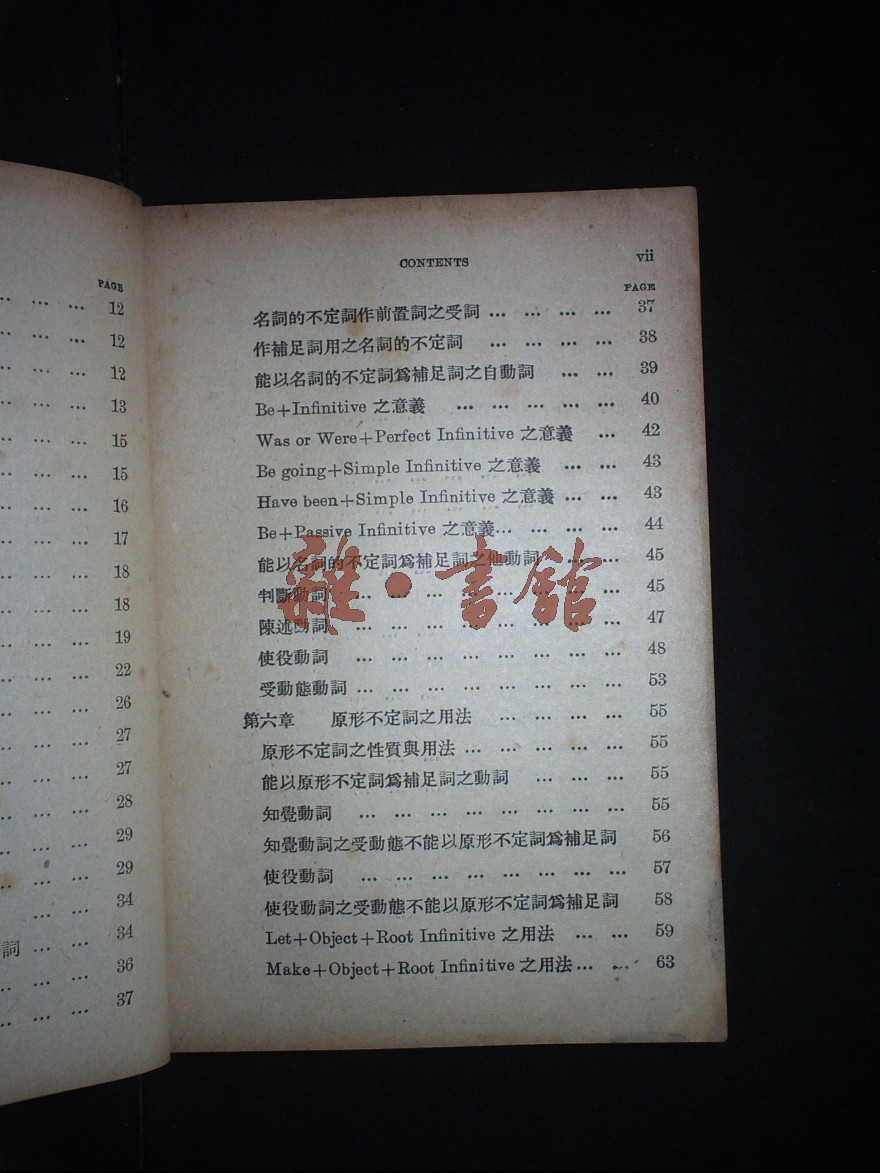 PAGE
... ... ... 12
... ... ... 12
... ... ... 12
... ... ... 13
... ... ... 15
... ... ... 15
... ... ... 16
... ... ... 17
... ... ... 18
... ... ... 18
... ... ... 19
... ... ... 22
... ... ... 26
... ... ... 27
... ... ... 27
... ... ... 28
... ... ... 29
... ... ... 29
... ... 34
詞 ... ... 34
... ... ... 36
... ... ... 37
CONTENTS vii
PAGE
名詞的不定詞作前置詞之受詞 ... ... ... ... 37
作補足詞用之名詞的不定詞 ... ... ... ... 38
能以名詞的不定詞爲補足詞之自動詞 ... ... 39
Be+Infinitive 之意義 ... ... ... ... ... 40
Was or Were+Perfect Infinitive 之意義 ... 42
Be going+Simple Infinitive 之意義 ... ... 43
Have been+Simple Infinitive 之意義 ... ... 43
Be+Passive Infinitive 之意義... ... ... ... 44
能以名詞的不定詞爲補足詞之他動詞 ... ... 45
判斷動詞 ... ... ... ... ... ... ... ... 45
陳述動詞 ... ... ... ... ... ... ... ... 47
使役動詞 ... ... ... ... ... ... ... ... 48
受動態動詞 ... ... ... ... ... ... ... ... 53
第六章 原形不定詞之用法 ... ... ... ... ... 55
原形不定詞之性質與用法 ... ... ... ... ... 55
能以原形不定詞爲補足詞之動詞 ... ... ... 55
知覺動詞 ... ... ... ... ... ... ... ... 55
知覺動詞之受動態不能以原形不定詞爲補足詞 56
使役動詞 ... ... ... ... ... ... ... ... 57
使役動詞之受動態不能以原形不定詞爲補足詞 58
Let+Object+Root Infinitive 之用法 ... ... 59
Make+Object+Root Infinitive 之用法 ... ... 63
雜·書館